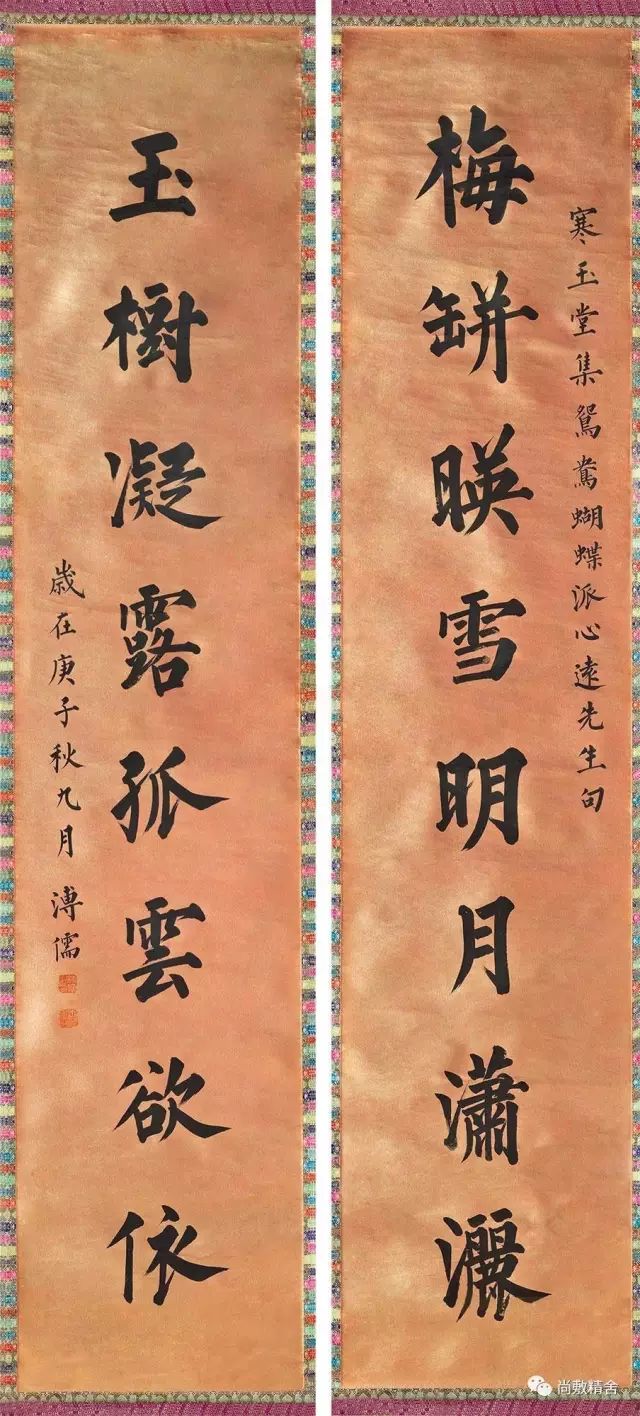 寒玉堂集鴛鴦蝴蝶派心遠先生句
梅缾暎雪明月瀟灑
玉樹凝露孤雲欲依
歲在庚子秋九月 溥儒
尚敷精舍